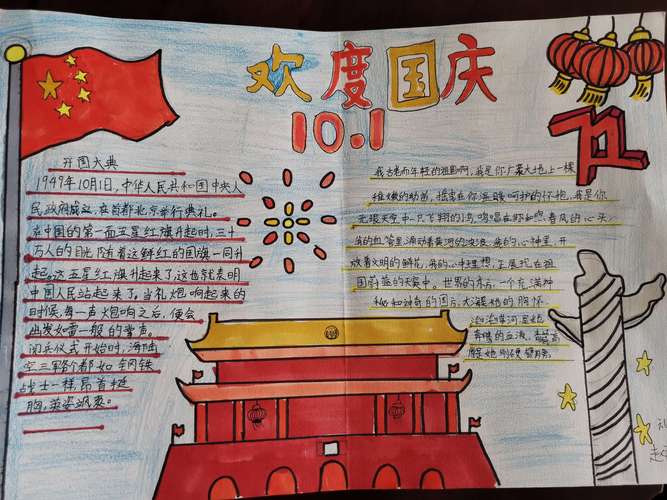 欢度国庆
10.1
开国大典
1949年10月1日,中华人民共和国中央人
民政府成立,在首都北京举行典礼。
在中国的第一面五星红旗升起时,三十
万人的目光随着这鲜红的国旗一同升
起。这五星红旗升起来了,这也就表明
中国人民站起来了。当礼炮响起来的
时候,每一声炮响之后,便会
出发如雷一般的掌声。
阅兵仪式开始时,海陆
空三军各个都如钢铁
战士一样,昂首挺
胸,英姿飒爽。
我古老而年轻的祖国啊,我是你广袤大地上一棵
稚嫩的幼苗,摇曳在你温暖呵护的怀抱,我是你
无垠天空中一只飞翔的鸟,鸣唱在你和煦春风的心头,
我的血管里涌动着黄河的波浪,我的心神里,开
放着文明的鲜花,我的心中理想,正展现在祖
国蔚蓝的天穹中,世界的东方,一个充满神
秘和神奇的国方,大海般的胸怀,
滔滔黄河是她
奔腾的血液,